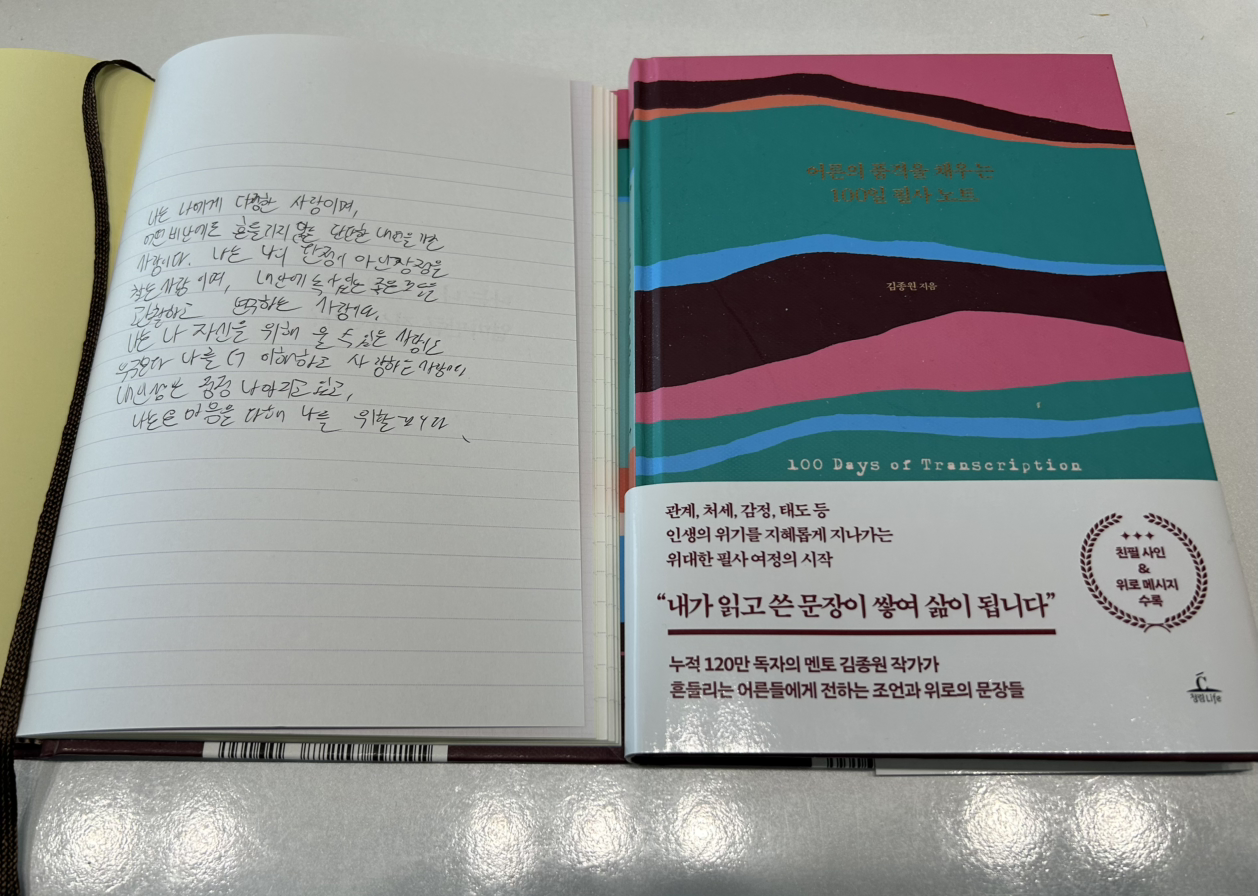 나는 나에게 다정한 사람이며,
어떤 비난에도 흔들리지 않는 단단한 내면을 가진
사람이다. 나는 나의 단점이 아닌 장점을
찾는 사람이며, 내 안에 녹아있는 좋은 것을
관찰하고 하는 사람이다.
나는 나 자신을 위해 울 수 있는 사람이고
누구보다 나를 더 이해하고 사랑하는 사람이다
내 인생은 점점 나아지고 있고,
나는 온 마음을 다해 나를 위할 것이다.
어른의 품격을 채우는
100일 필사 노트
김종원 지음
100 Days of Transcription
관계, 처세, 감정, 태도 등
인생의 위기를 지혜롭게 지나가는
위대한 필사 여정의 시작
“내가 읽고 쓴 문장이 쌓여 삶이 됩니다”
누적 120만 독자의 멘토 김종원 작가가
흔들리는 어른들에게 전하는 조언과 위로의 문장들
친필 사인
&
위로 메시지
수록
청림Life